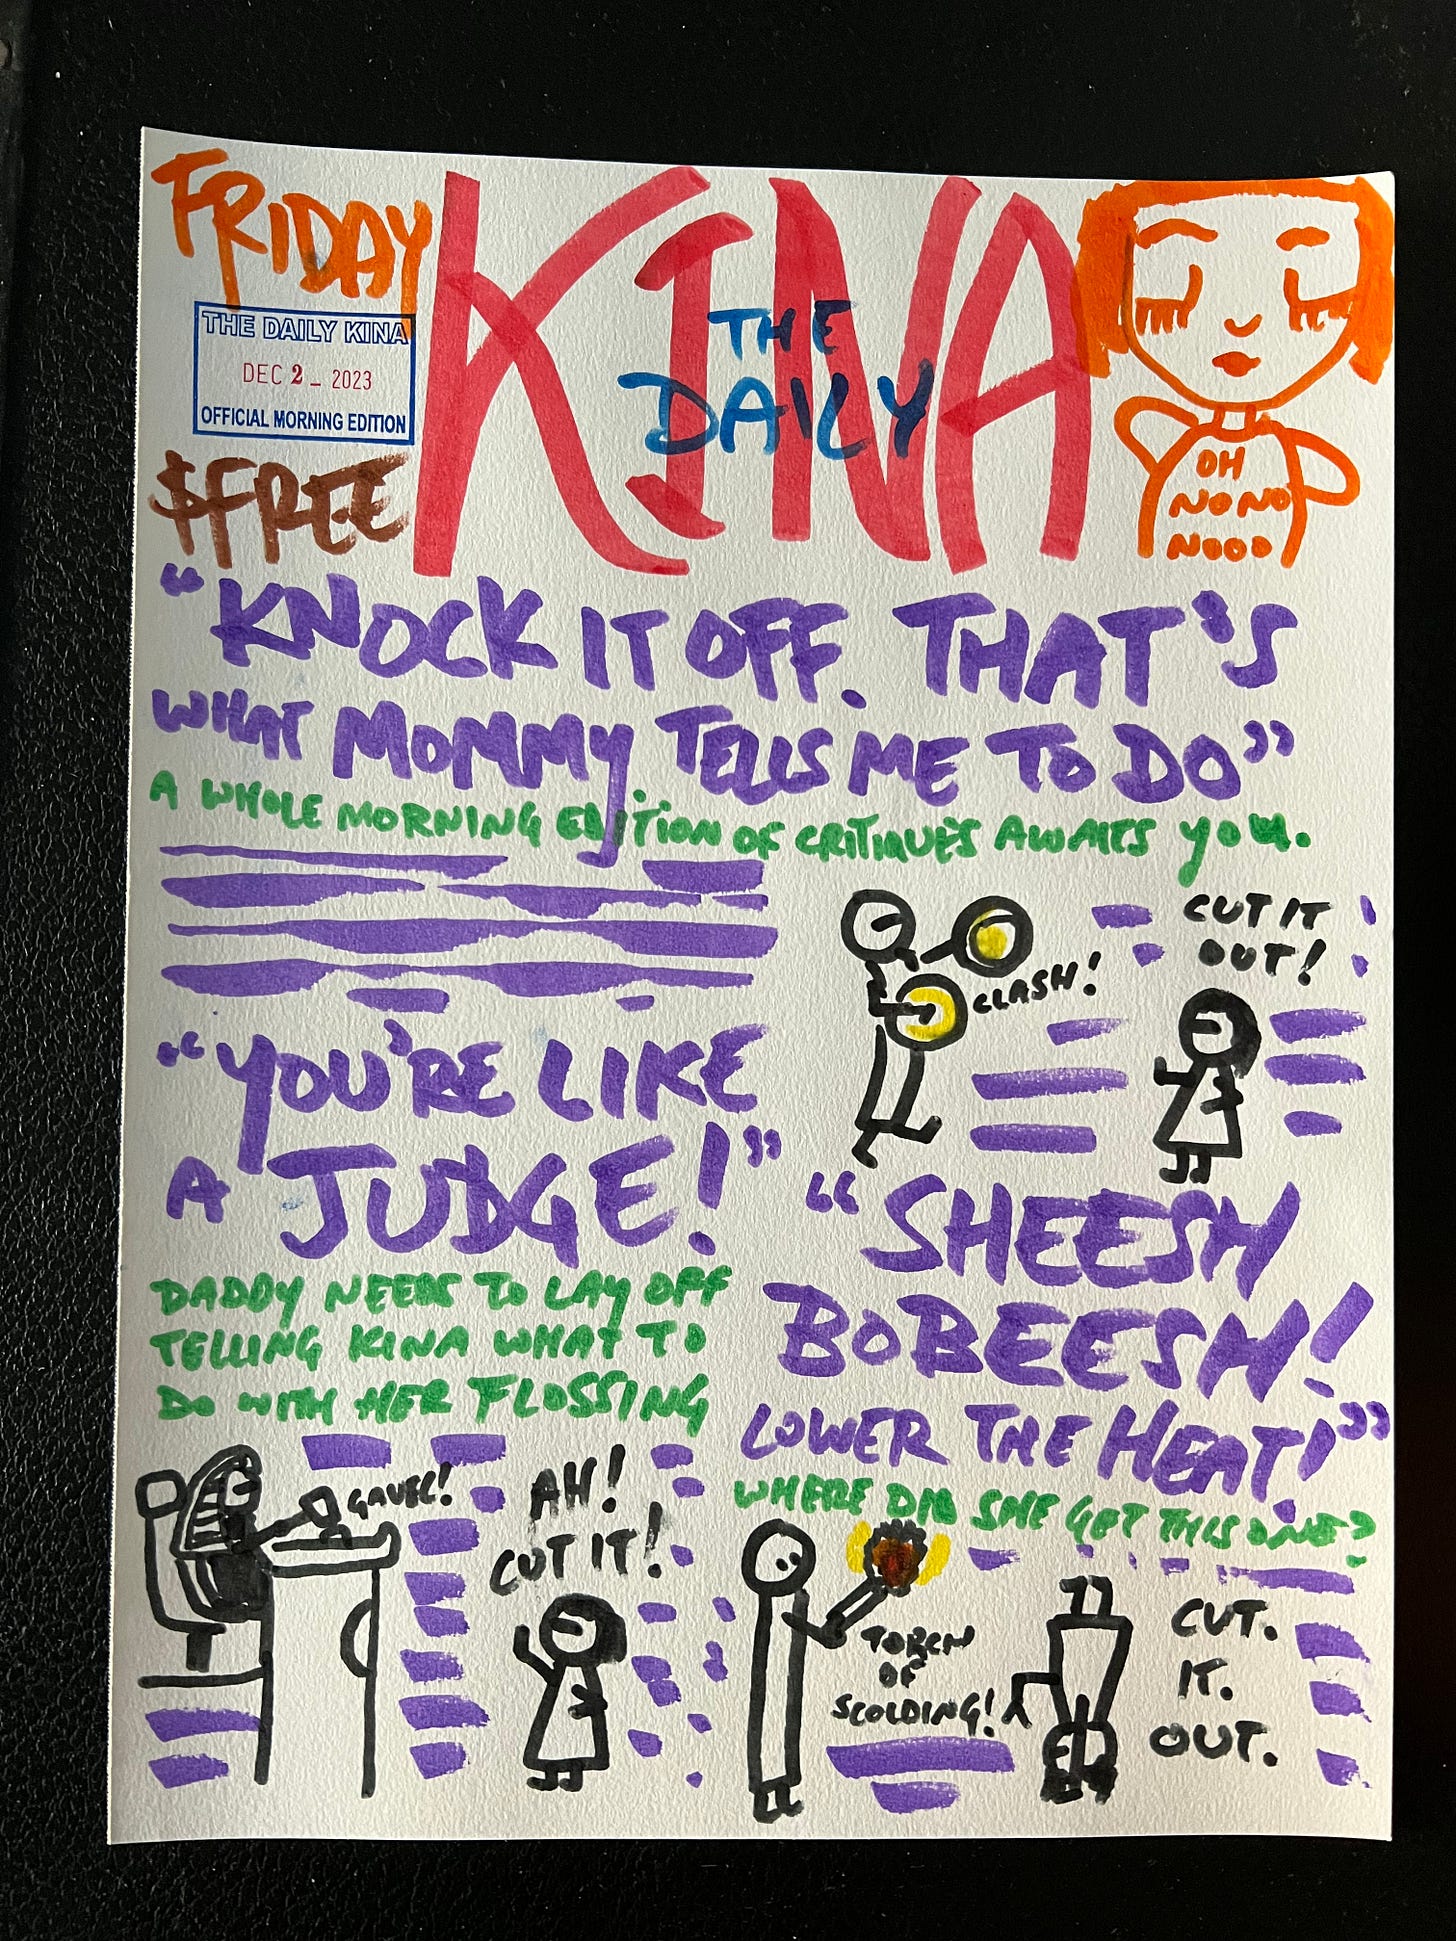 FRIDAY
THE DAILY KINA
DEC 2 - 2023
OFFICIAL MORNING EDITION
$FREE
KINA
THE
DAILY
OH
NO NO
NOOO
"KNOCK IT OFF. THAT'S
WHAT MOMMY TELLS ME TO DO"
A WHOLE MORNING EDITION OF CRITIQUES AWAITS YOU.
CLASH!
CUT IT
OUT!
"YOU'RE LIKE
A JUDGE!"
DADDY NEEDS TO LAY OFF
TELLING KINA WHAT TO
DO WITH HER FLOSSING
GAVEL!
AH!
CUT IT!
"SHEESH
BOBEESH!
LOWER THE HEAT!"
WHERE DID SHE GET THIS ONE?
TORCH
OF
SCOLDING!
CUT.
IT.
OUT.